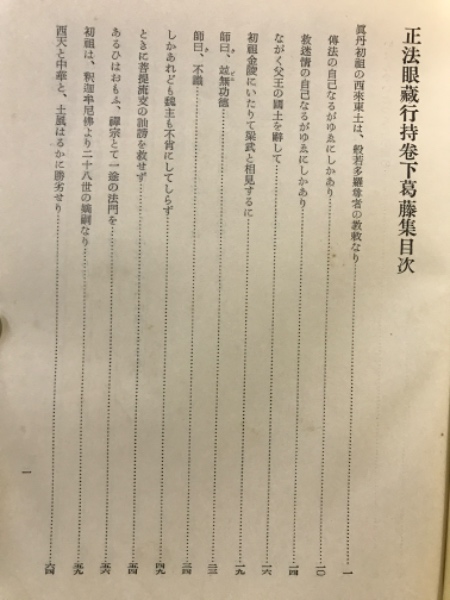 正法眼藏行持卷下葛藤集目次
眞丹初祖の西來東土は、般若多羅尊者の敎敕なり……一
傳法の自己なるがゆゑにしかあり……一〇
救迷情の自己なるがゆゑにしかあり……一四
ながく父王の國土を辭して……一六
初祖金陵にいたりて梁武と相見するに……一九
師曰、竝無功德……二三
師曰、不識……三四
しかあれども魏主も不肖にしてしらず……四九
ときに菩提流支の訕謗を救せず……五四
あるひはおもふ、禪宗とて一途の法門を……五六
初祖は、釋迦牟尼佛より二十八世の嫡嗣なり……五九
西天と中華と、土風はるかに勝劣せり……六四
一